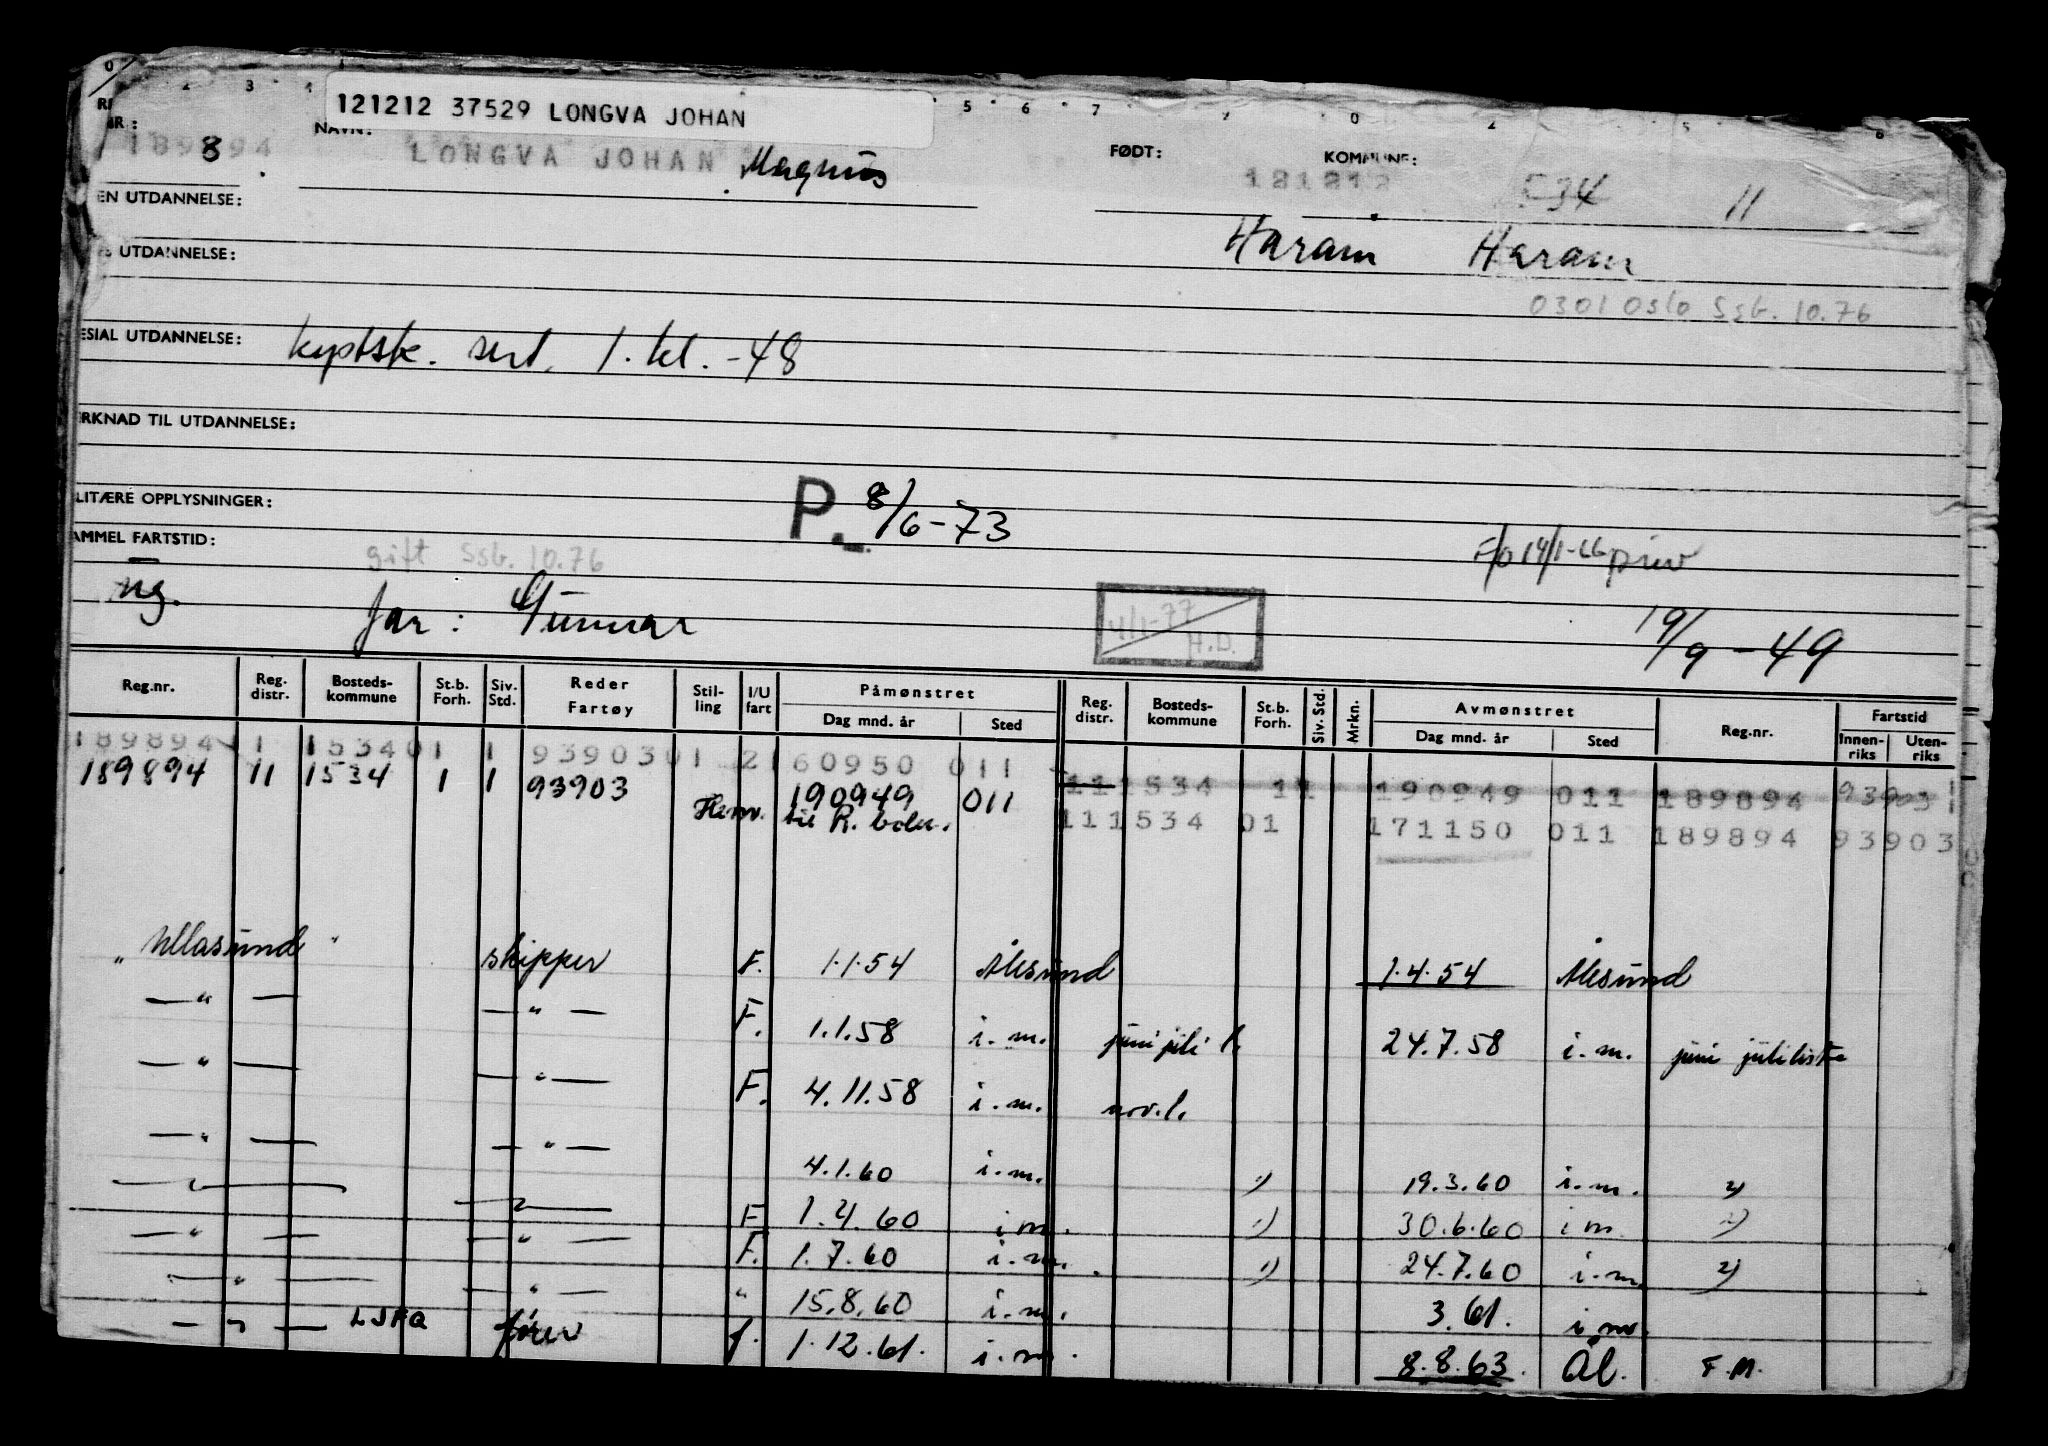 121212 37529 LONGVA JOHAN
NAVN: FØDT: KOMMUNE:
189894 8 LONGVA JOHAN Magnus 121212 34 11
EN UTDANNELSE:
Haram Haram
UTDANNELSE:
0301 Oslo Ssb. 10.76
ESIAL UTDANNELSE: kystsk. sert. 1. kl. -48
ERKNAD TIL UTDANNELSE:
LITÆRE OPPLYSNINGER: P. 8/6-73
AMMEL FARTSTID: gift Ssb. 10.76 F/O 14/1-66 priv
ng. far: Gunnar 4/1-77 H.D. 19/9-49
Reg.nr. Reg. distr. Bosteds-kommune St.b. Forh. Siv. Std. Reder Fartøy Stil-ling I/U fart Påmønstret Dag mnd. år Sted Reg. distr. Bosteds-kommune St.b. Forh. Siv. Std. Mrkn. Avmønstret Dag mnd. år Sted Reg.nr. Fartstid Innen-riks Uten-riks
189894 11 1534 01 1 93903 01 2 160950 011
189894 11 1534 1 1 93903 190949 011 11 1534 11 190949 011 189894 93903 1
til R. 111534 01 171150 011 189894 93903
" Ullasund " skipper F. 1.1.54 Ålesund 1.4.54 Ålesund
— " — — " — F. 1.1.58 i.m. juni juli l. 24.7.58 i.m. juni juliliste
— " — — " — F. 4.11.58 i.m. nov.l.
— " — — " — 4.1.60 i.m. 1) 19.3.60 i.m. 2)
— " — — " — F 1.4.60 i m. 1) 30.6.60 i m 2)
— " — — " — F. 1.7.60 i.m. 1) 24.7.60 i.m. 2)
— " — — " — " 15.8.60 i.m. 3.61. i m.
— " — LJFQ fører f. 1.12.61. i.m. 8.8.63. Ål. F.M.